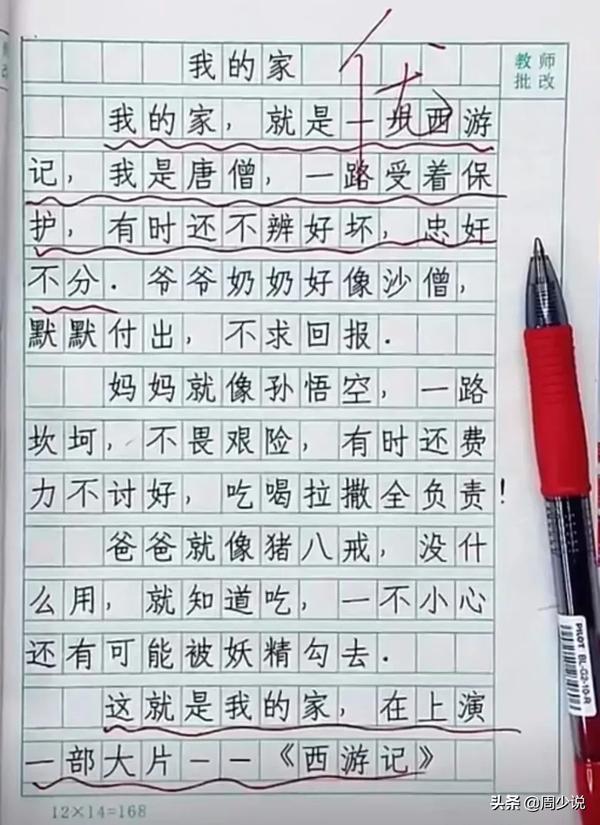 我的家
优
教师
批改
我的家，就是一西游
记，我是唐僧，一路受着保
护，有时还不辨好坏，忠奸
不分．爷爷奶奶好像沙僧，
默默付出，不求回报．
妈妈就像孙悟空，一路
坎坷，不畏艰险，有时还费
力不讨好，吃喝拉撒全负责！
爸爸就像猪八戒，没什
么用，就知道吃，一不小心
还有可能被妖精勾去．
这就是我的家，在上演
一部大片——《西游记》
12×14=168
PILOT BL-G2-10-R
头条 @周少说